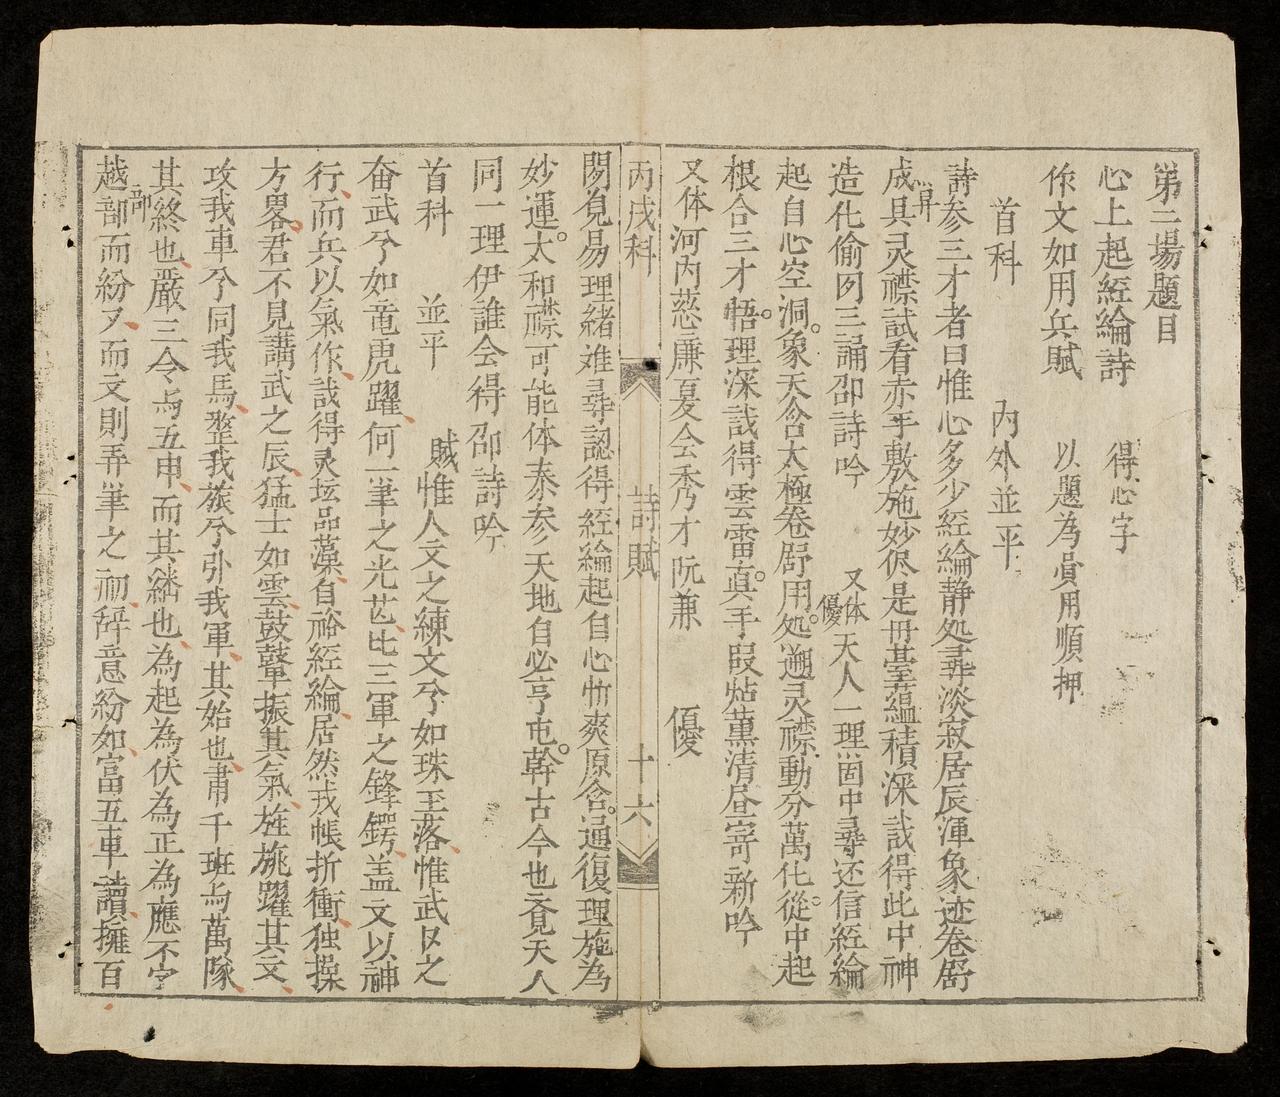 第二場題目
心上起經綸詩　得心字
作文如用兵賦　以題為韻用順押
首科　內外並平
詩参三才者曰惟心多少經綸静処尋淡寂居辰渾象迹卷舒
成具灵襟試看赤手敷施妙侭是丹臺蘊積深哉得此中神
造化偷囘三誦邵詩吟　又体　優　天人一理箇中尋还信經綸
起自心空洞象天含太極卷舒用処遡灵襟動分萬化從中起
根合三才悟理深哉得雲雷真手段炲薫清昼寄新吟
又体河内慈廉夏会秀才阮兼　優
丙戌科　詩賦　十六
閱覓易理緒难尋認得經綸起自心怉爽原含通復理施為
妙運太和襟可能体泰参天地自必亨屯幹古今也竟天人
同一理伊誰会得邵詩吟
首科　並平　賦惟人文之練文兮如珠玉落惟武臣之
奮武兮如竜虎躍何一筆之光芒比三軍之鋒鍔盖文以神
行而兵以氣作哉得灵坛品藻自裕經綸居然戎帳折衝独操
方畧君不見講武之辰猛士如雲鼓鼙振其氣旌旄躍其文
攻我車兮同我馬整我旅兮引我軍其始也肅千班与萬隊
其終也嚴三令与五申而其繙也為起為伏為正為應不字
越部而紛又而文則弄筆之初辞意紛如富五車讀擁百